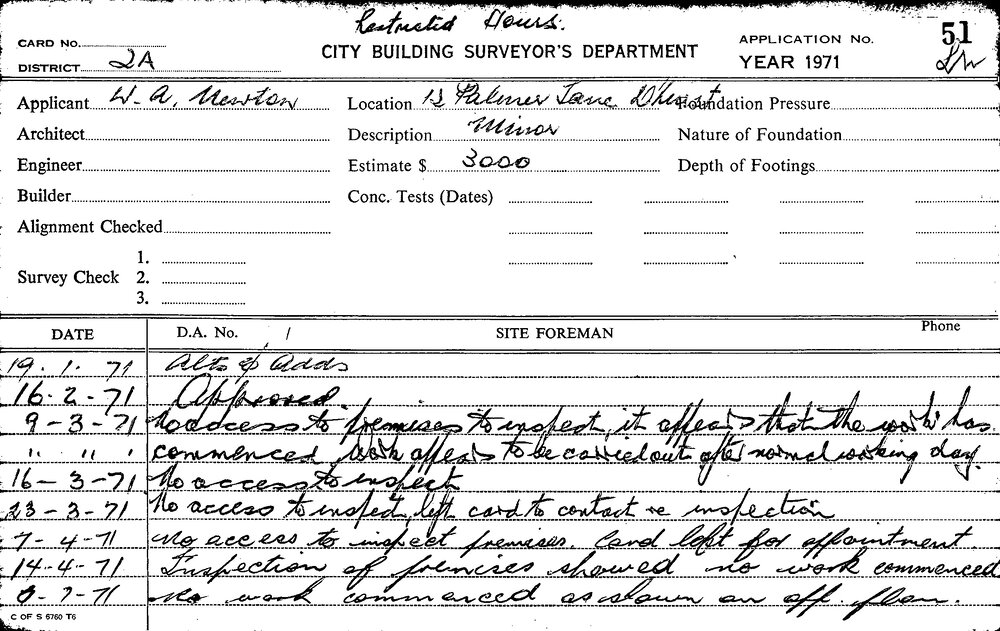 Restricted Hours.
CARD No.
DISTRICT 2A
CITY BUILDING SURVEYOR'S DEPARTMENT
APPLICATION No. 51
YEAR 1971
Applicant W. A. Newton
Location 12 Palmer Lane D'hurst
Foundation Pressure
Architect
Description Minor
Nature of Foundation
Engineer
Estimate $ 3000
Depth of Footings
Builder
Conc. Tests (Dates)
Alignment Checked
Survey Check
1.
2.
3.
DATE D.A. No. / SITE FOREMAN Phone
19. 1. 71 Alts & Adds
16-2-71 Approved.
9-3-71 No access to premises to inspect, it appears that the work has
" " " commenced, work appears to be carried out after normal working day.
16-3-71 No access to inspect
23-3-71 No access to inspect, left card to contact re inspection
7-4-71 No access to inspect premises. Card left for appointment.
14-4-71 Inspection of premises showed no work commenced
-7-71 No work commenced as shown on app. plan.
C OF S 6760 T6